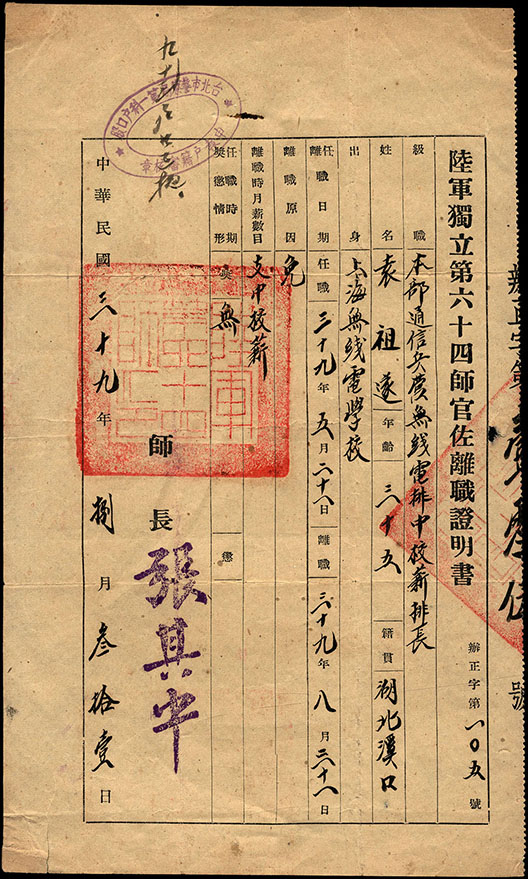 陸軍獨立第六十四師官佐離職證明書
辦正字第一〇五號
級職 本部通信兵處無线電排中校薪排長
姓名 袁祖遂 年齡 三十五 籍貫 湖北漢口
出身 上海無线電學校
任職離職日期 任職 三十九年五月二十八日 離職 三十九年八月三十一日
離職原因 免
離職時月薪數目 支中校薪
任職時期獎懲情形 獎 無 懲
師長 張其中
中華民國三十九年捌月叁拾壹日